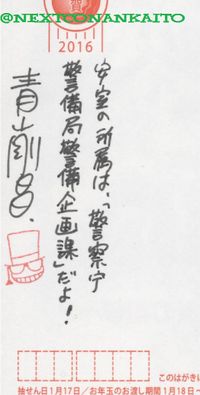 @NEXTCONANKAITO
賀
2016
安室の所属は、「警察庁
警備局警備企画課」だよ!
青山剛昌.
このはがき
抽せん日1月17日/お年玉のお渡し期間1月18日~